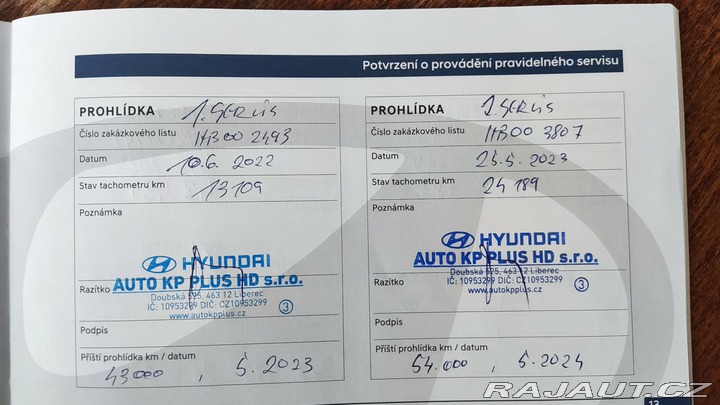 Potvrzení o provádění pravidelného servisu
PROHLÍDKA 1. SERVIS
Číslo zakázkového listu HB00 2493
Datum 10.6. 2022
Stav tachometru km 13109
Poznámka
HYUNDAI
AUTO KP PLUS HD s.r.o.
Doubská 525, 463 12 Liberec
IČ: 10953299 DIČ: CZ10953299
www.autokpplus.cz
3
Razítko
Podpis
Příští prohlídka km / datum
43000 , 5. 2023
PROHLÍDKA 2. SERVIS
Číslo zakázkového listu HB00 3807
Datum 25.5. 2023
Stav tachometru km 24 189
Poznámka
HYUNDAI
AUTO KP PLUS HD s.r.o.
Doubská 525, 463 12 Liberec
IČ: 10953299 DIČ: CZ10953299
www.autokpplus.cz
3
Razítko
Podpis
Příští prohlídka km / datum
54.000 , 5. 2024
13
RAJAUT.CZ